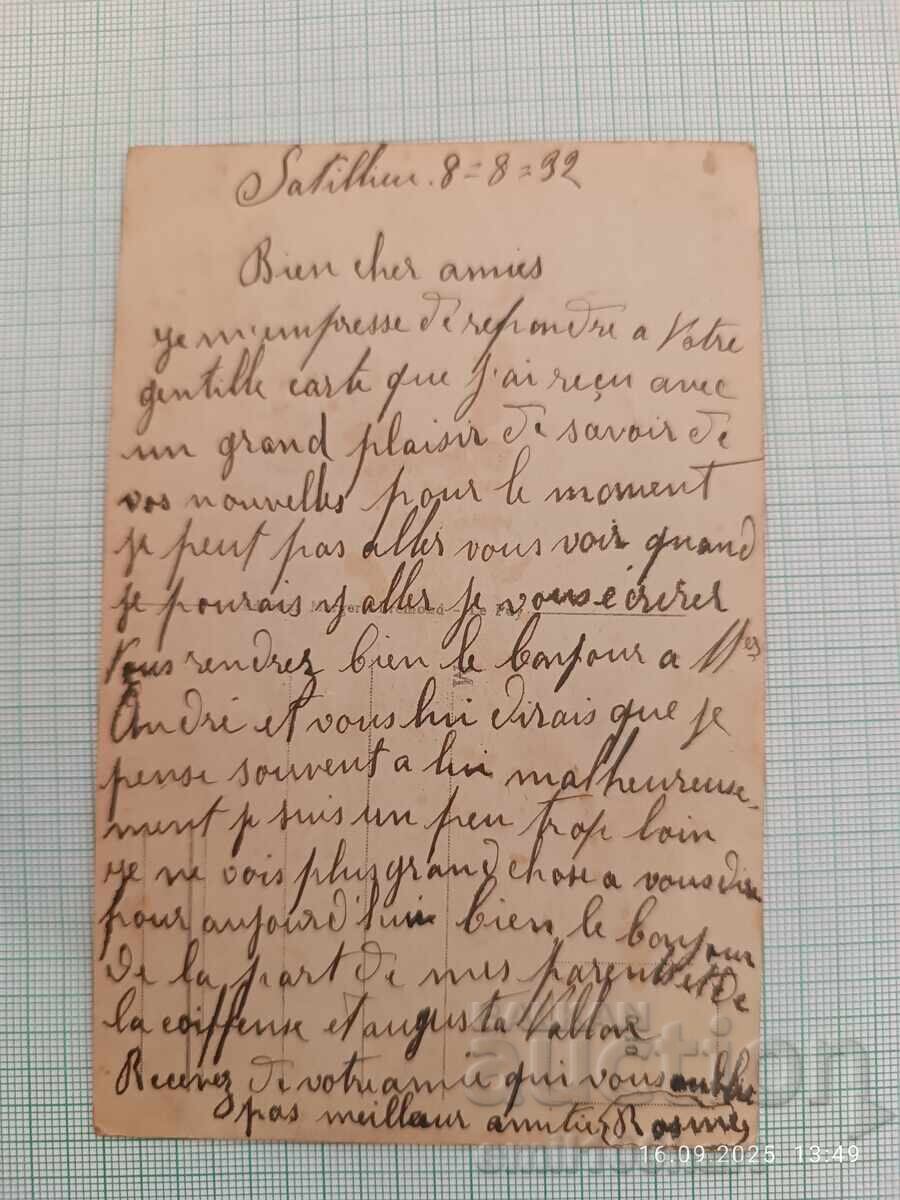 Satillieu. 8=8=32
Bien cher amies
je m'empresse de repondre a Votre
gentille carte que j'ai reçu avec
un grand plaisir de savoir de
vos nouvelles pour le moment
je peut pas aller vous voir quand
je pourais y aller je vous écrirer
Vous rendrez bien le bonjour a
André et vous lui dirais que je
pense souvent a lui malheureuse-
ment je suis un peu trop loin
je ne vois plus grand chose a vous dire
pour aujourd'hui bien le bonjour
de la part de mes parents et de
la coiffeuse et augusta
Recevez de votre amie qui vous oublie
pas meilleur amitiez
auction
16.09.2025 13:49